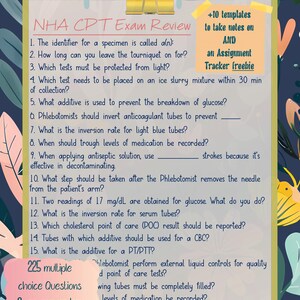 NHA CPT Exam Review
+10 templates
to take notes on
AND
an Assignment
Tracker freebie
1. The identifier for a specimen is called a(n)
2. How long can you leave the tourniquet on for?
3. Which tests must be protected from light?
4. Which test needs to be placed on an ice slurry mixture within 30 min
of collection?
5. What additive is used to prevent the breakdown of glucose?
6. Phlebotomists should invert anticoagulant tubes to prevent _____
7. What is the inversion rate for light blue tubes?
8. When should trough levels of medication be recorded?
9. When applying antiseptic solution, use __________ strokes because it's
effective in decontaminating
10. What step should be taken after the Phlebotomist removes the needle
from the patient's arm?
11. Two readings of 1.7 mg/dL are obtained for glucose. What do you do?
12. What is the inversion rate for serum tubes?
13. Which cholesterol point of care (POC) result should be reported?
14. Tubes with which additive should be used for a CBC?
15. What is the additive for a PT/DTT?
Phlebotomist perform external liquid controls for quality
d point of care tests?
wing tubes must be completely filled?
levels of medication be recorded?
225 multiple
choice Questions